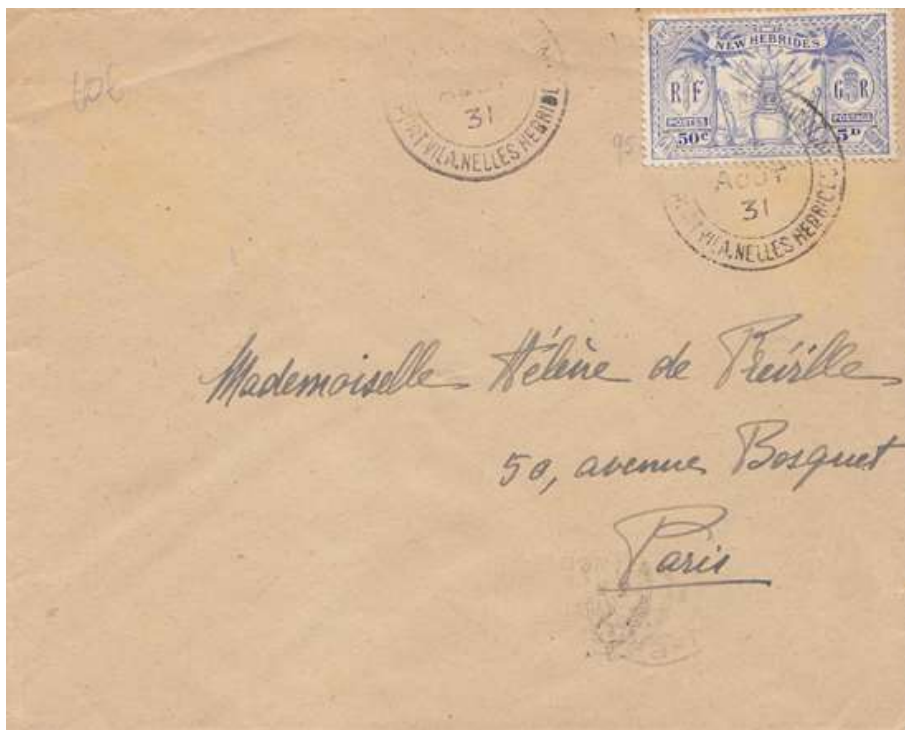 60€
31
PORT VILA. NELLES HEBRIDES
NEW HEBRIDES
R F
G R
POSTES
POSTAGE
50c
5D
95
AOUT
31
PORT VILA. NELLES HEBRIDES
Mademoiselle Hélène de Préville
50, avenue Bosquet
Paris